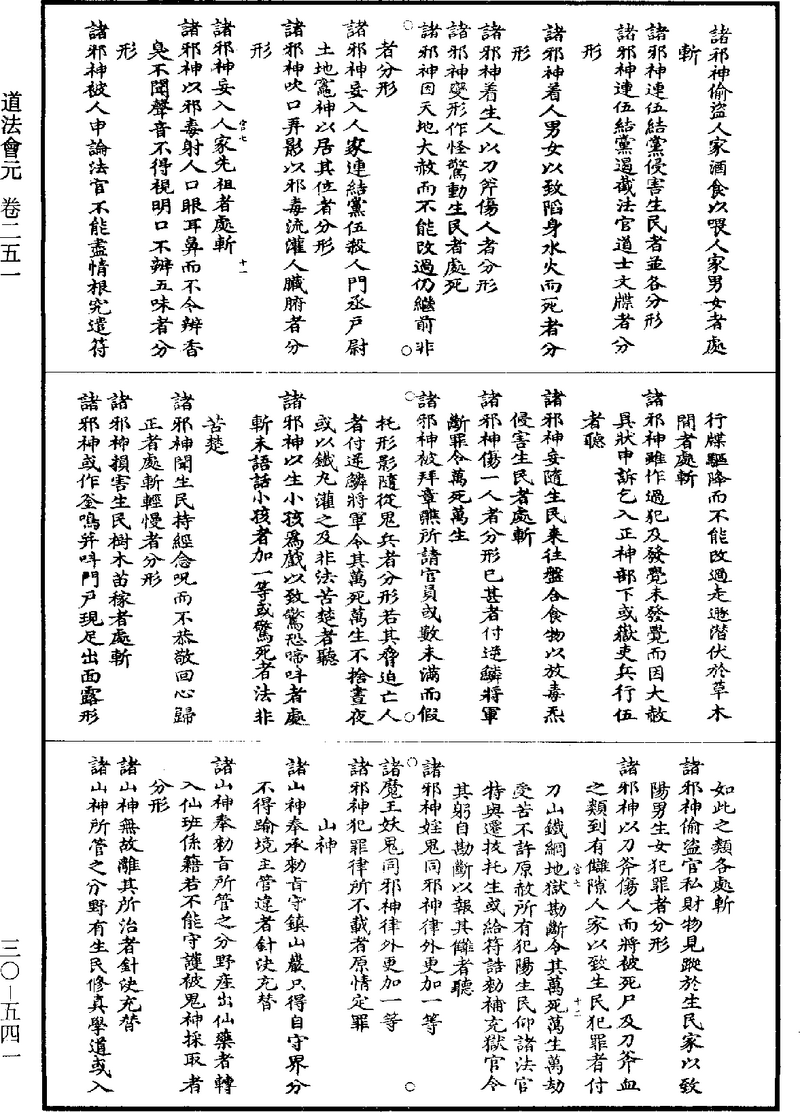 道法會元　卷二五一
諸邪神偷盜人家酒食以喂人家男女者處
斬
諸邪神連伍結黨侵害生民者並各分形
諸邪神連伍結黨遏截法官道士文牒者分
形
諸邪神着人男女以致蹈身水火而死者分
形
諸邪神着生人以刀斧傷人者分形
諸邪神變形作怪驚動生民者處死
諸邪神因天地大赦而不能改過仍繼前非
者分形
諸邪神妄入人家連結黨伍殺人門丞戶尉
土地竈神以居其位者分形
諸邪神吹口弄影以邪毒流灌人臟腑者分
形
諸邪神妄入人家先祖者處斬
諸邪神以邪毒射人口眼耳鼻而不令辨香
臭不聞聲音不得視明口不辨五味者分
形
諸邪神被人申論法官不能盡情根究遣符
行牒驅降而不能改過走遯潛伏於草木
間者處斬
諸邪神雖作過犯及發覺未發覺而因大赦
具狀申訴乞入正神部下或嶽吏兵行伍
者聽
諸邪神妄隨生民來往盤合食物以放毒炁
侵害生民者處斬
諸邪神傷一人者分形已甚者付逆鱗將軍
斷罪令萬死萬生
諸邪神被拜章醮所請官員或數未滿而假
托形影隨從鬼兵者分形若其脅迫亡人
者付逆鱗將軍令其萬死萬生不捨晝夜
或以鐵丸灌之及非法苦楚者聽
諸邪神以生小孩為戲以致驚恐啼呌者處
斬未語話小孩者加一等或驚死者法非
苦楚
諸邪神聞生民持經念呪而不恭敬回心歸
正者處斬輕慢者分形
諸邪神損害生民樹木苗稼者處斬
諸邪神或作釜鳴井呌門戶現足出面露形
如此之類各處斬
諸邪神偷盜官私財物見蹤於生民家以致
陽男生女犯罪者分形
諸邪神以刀斧傷人而將被死尸及刀斧血
之類到有讎隙人家以致生民犯罪者付
刀山鐵網地獄勘斷令其萬死萬生萬劫
受苦不許原赦所有犯陽生民仰諸法官
特與遷拔托生或給符誥勑補充獄官令
其躬自勘斷以報其讎者聽
諸邪神婬鬼同邪神律外更加一等
諸魔王妖鬼同邪神律外更加一等
諸邪神犯罪律所不載者原情定罪
山神
諸山神奉承勑旨守鎮山巖只得自守界分
不得踰境主管違者針決充替
諸山神奉勑旨所管之分野產出仙藥者轉
入仙班係籍若不能守護被鬼神採取者
分形
諸山神無故離其所治者針決充替
諸山神所管之分野有生民修真學道或入
三〇—五四一